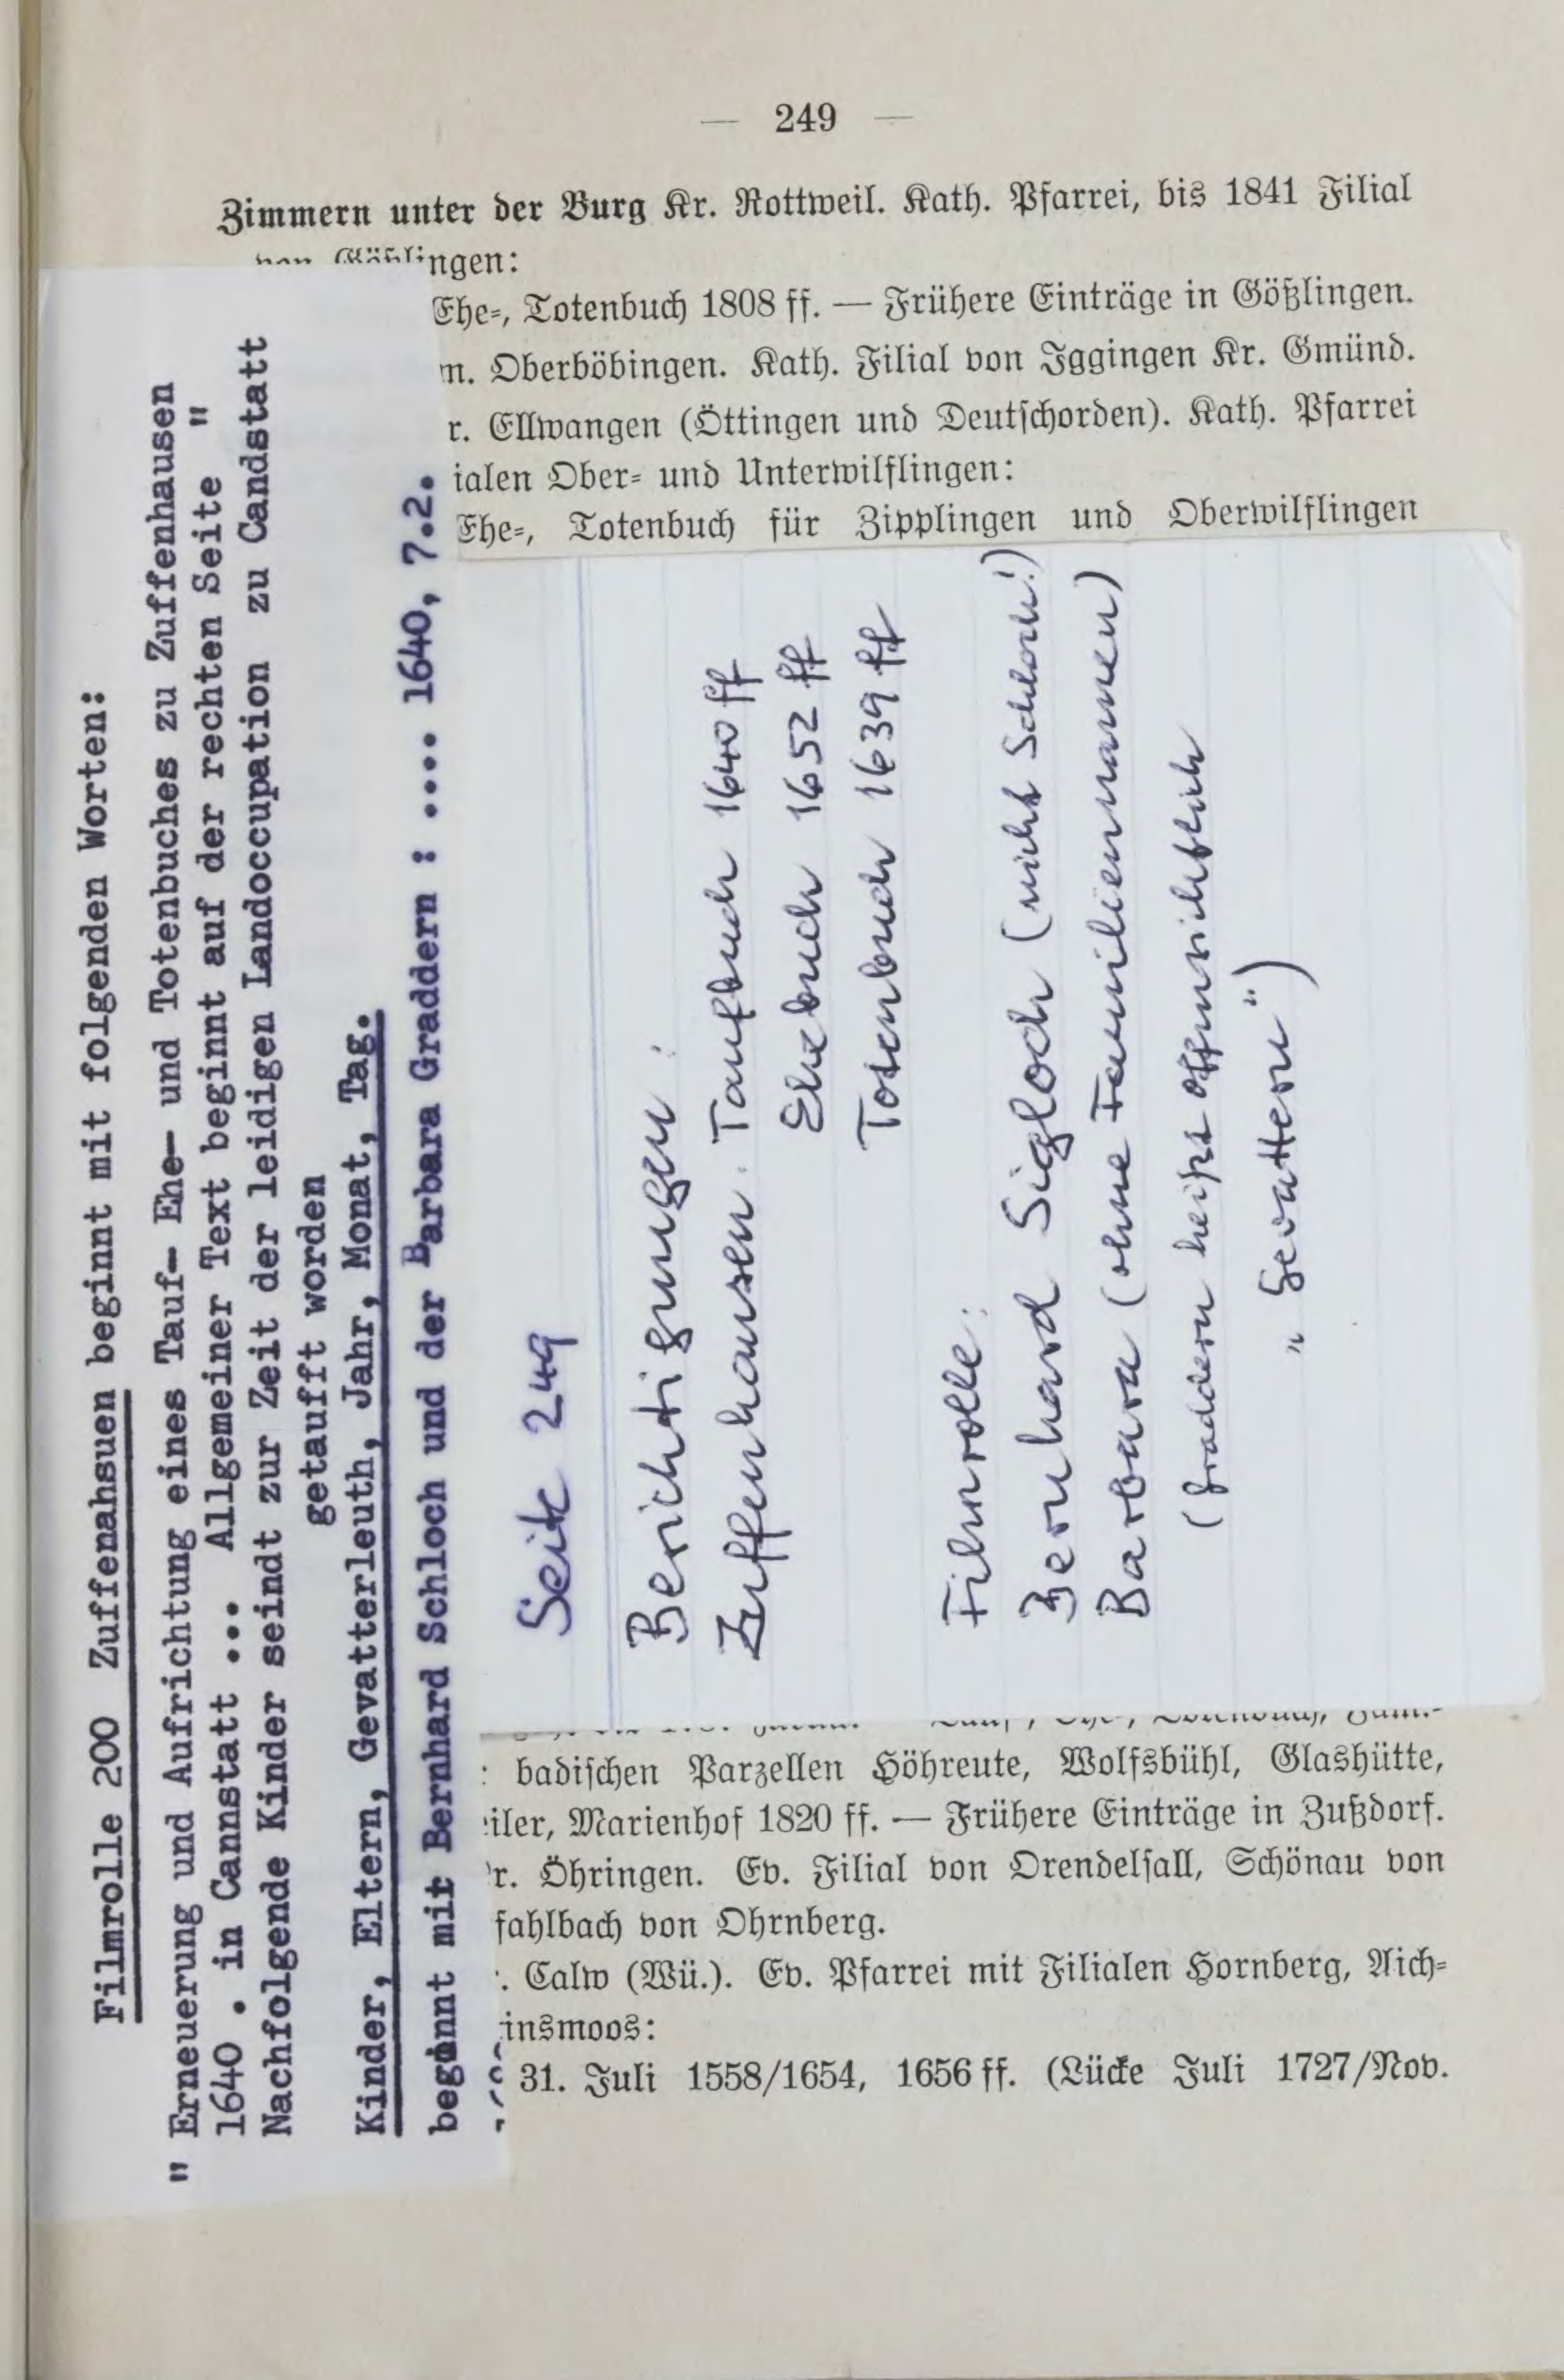 — 249 —
Zimmern unter der Burg Kr. Rottweil. Kath. Pfarrei, bis 1841 Filial
von Gößlingen:
Ehe-, Totenbuch 1808 ff. — Frühere Einträge in Gößlingen.
m. Oberböbingen. Kath. Filial von Iggingen Kr. Gmünd.
r. Ellwangen (Öttingen und Deutschorden). Kath. Pfarrei
ialen Ober- und Unterwilflingen:
Ehe-, Totenbuch für Zipplingen und Oberwilflingen
Filmrolle 200 Zuffenahsuen beginnt mit folgenden Worten:
" Erneuerung und Aufrichtung eines Tauf- Ehe- und Totenbuches zu Zuffenhausen
1640 . in Cannstatt ... Allgemeiner Text beginnt auf der rechten Seite "
Nachfolgende Kinder seindt zur Zeit der leidigen Landoccupation zu Candstatt
getaufft worden
Kinder, Eltern, Gevatterleuth, Jahr, Monat, Tag.
beginnt mit Bernhard Schloch und der Barbara Graddern : .... 1640, 7.2.
Seite 249
Berichtigungen:
Zuffenhausen. Taufbuch 1640 ff
Ehebuch 1652 ff
Totenbuch 1639 ff
Filmrolle:
Bernhard Sigloch (nicht Schloch!)
Barbara (ohne Familiennamen)
(Graddern heißt offensichtlich
"Gevattern")
: badischen Parzellen Höhreute, Wolfsbühl, Glashütte,
iler, Marienhof 1820 ff. — Frühere Einträge in Zußdorf.
r. Öhringen. Ev. Filial von Orendelsall, Schönau von
fahlbach von Ohrnberg.
. Calw (Wü.). Ev. Pfarrei mit Filialen Hornberg, Aich-
insmoos:
31. Juli 1558/1654, 1656 ff. (Lücke Juli 1727/Nov.